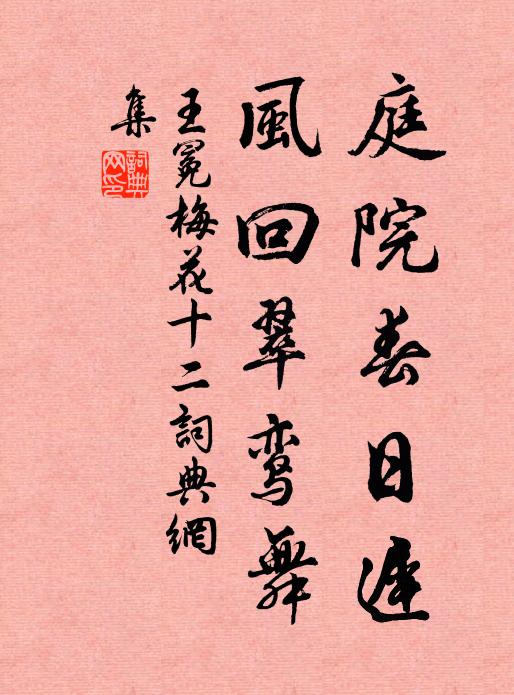 庭院春日遲
風回翠鸾舞
王冕梅花十二詞典網
集
詞典网印